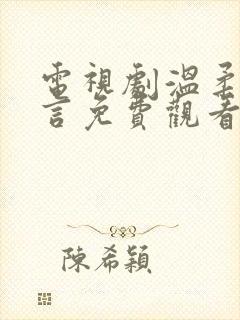 電視劇溫柔
言免費觀看
陳希穎